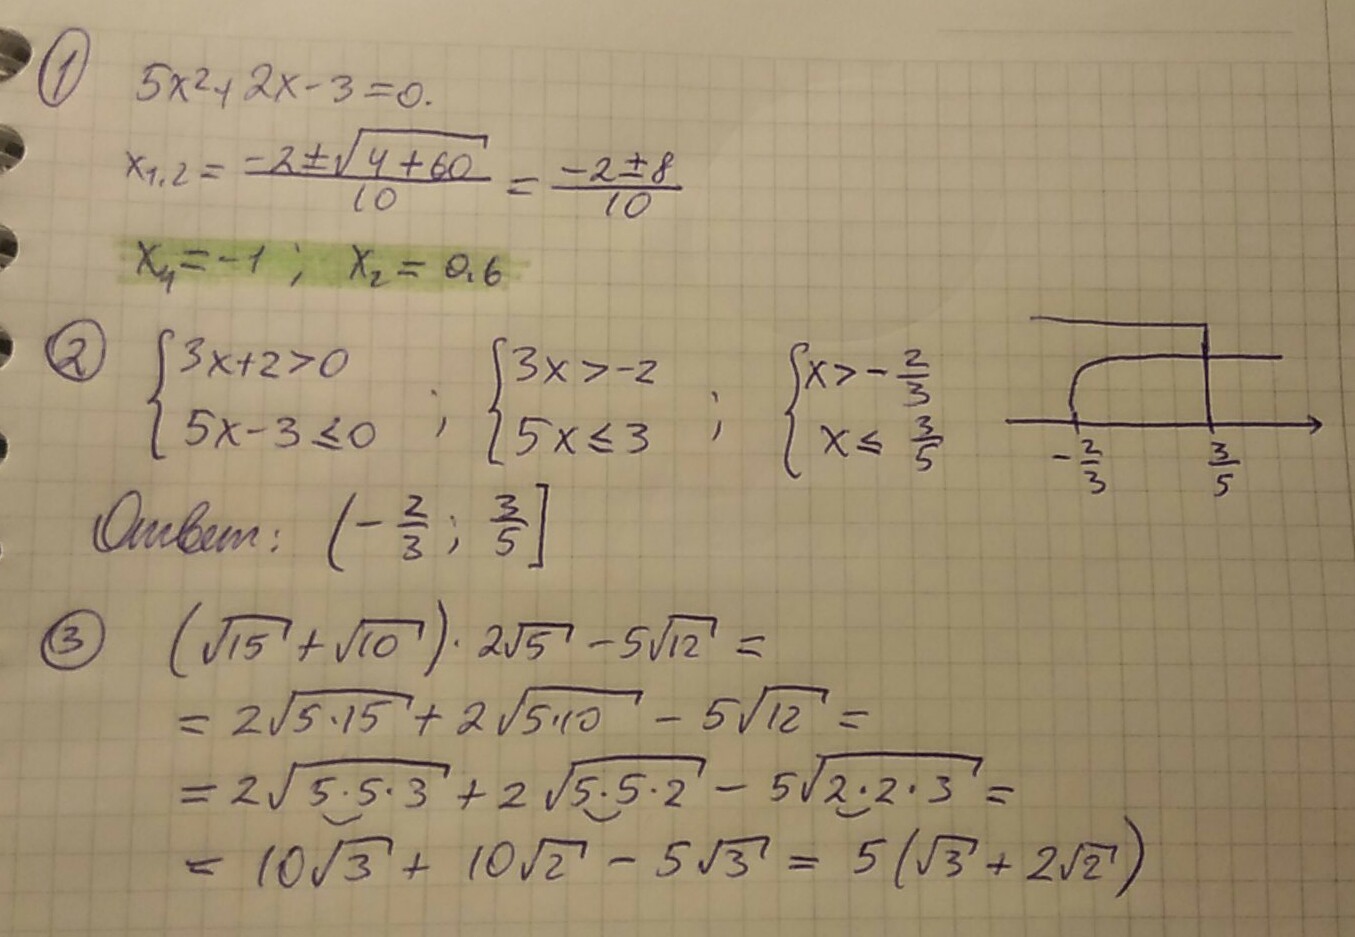 ① 5x² + 2x - 3 = 0.
x₁,₂ = (-2 ± √(4 + 60))/10 = (-2 ± 8)/10
x₁ = -1 ; x₂ = 0.6
② {3x + 2 > 0 ; 5x - 3 ≤ 0 ; {3x > -2 ; 5x ≤ 3 ; {x > -2/3 ; x ≤ 3/5
-2/3 3/5
Ответ: (-2/3 ; 3/5]
③ (√15 + √10) · 2√5 - 5√12 =
= 2√(5·15) + 2√(5·10) - 5√12 =
= 2√(5·5·3) + 2√(5·5·2) - 5√(2·2·3) =
= 10√3 + 10√2 - 5√3 = 5(√3 + 2√2)